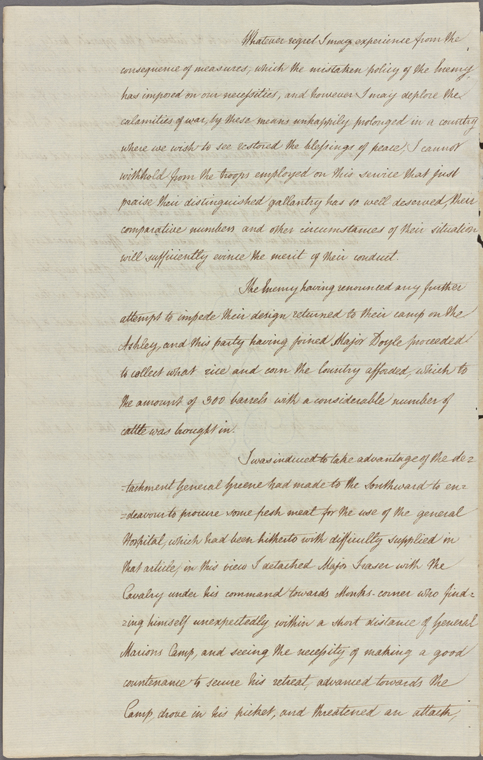 Whatever regret I may experience from the
consequence of measures, which the mistaken policy of the Enemy
has imposed on our necessities, and however I may deplore the
calamities of war, by these means unhappily prolonged in a country
where we wish to see restored the blessings of peace, I cannot
withhold from the troops employed on this service that just
praise their distinguished gallantry has so well deserved, their
comparative numbers and other circumstances of their situation
will sufficiently evince the merit of their conduct.
The Enemy having renounced any further
attempt to impede their design returned to their camp on the
Ashley, and this party having joined Major Doyle proceeded
to collect what rice and corn the Country afforded, which to
the amount of 300 barrels with a considerable number of
cattle was brought in.
I was induced to take advantage of the de-
-tachment General Greene had made to the Southward to en-
-deavour to procure some fresh meat for the use of the general
Hospital, which had been hitherto with difficulty supplied in
that article, in this view I detached Major Fraser with the
Cavalry under his command towards Monks-corner who find-
-ing himself unexpectedly within a short distance of General
Marions Camp, and seeing the necessity of making a good
countenance to secure his retreat, advanced towards the
Camp, drove in his picket, and threatened an attack,